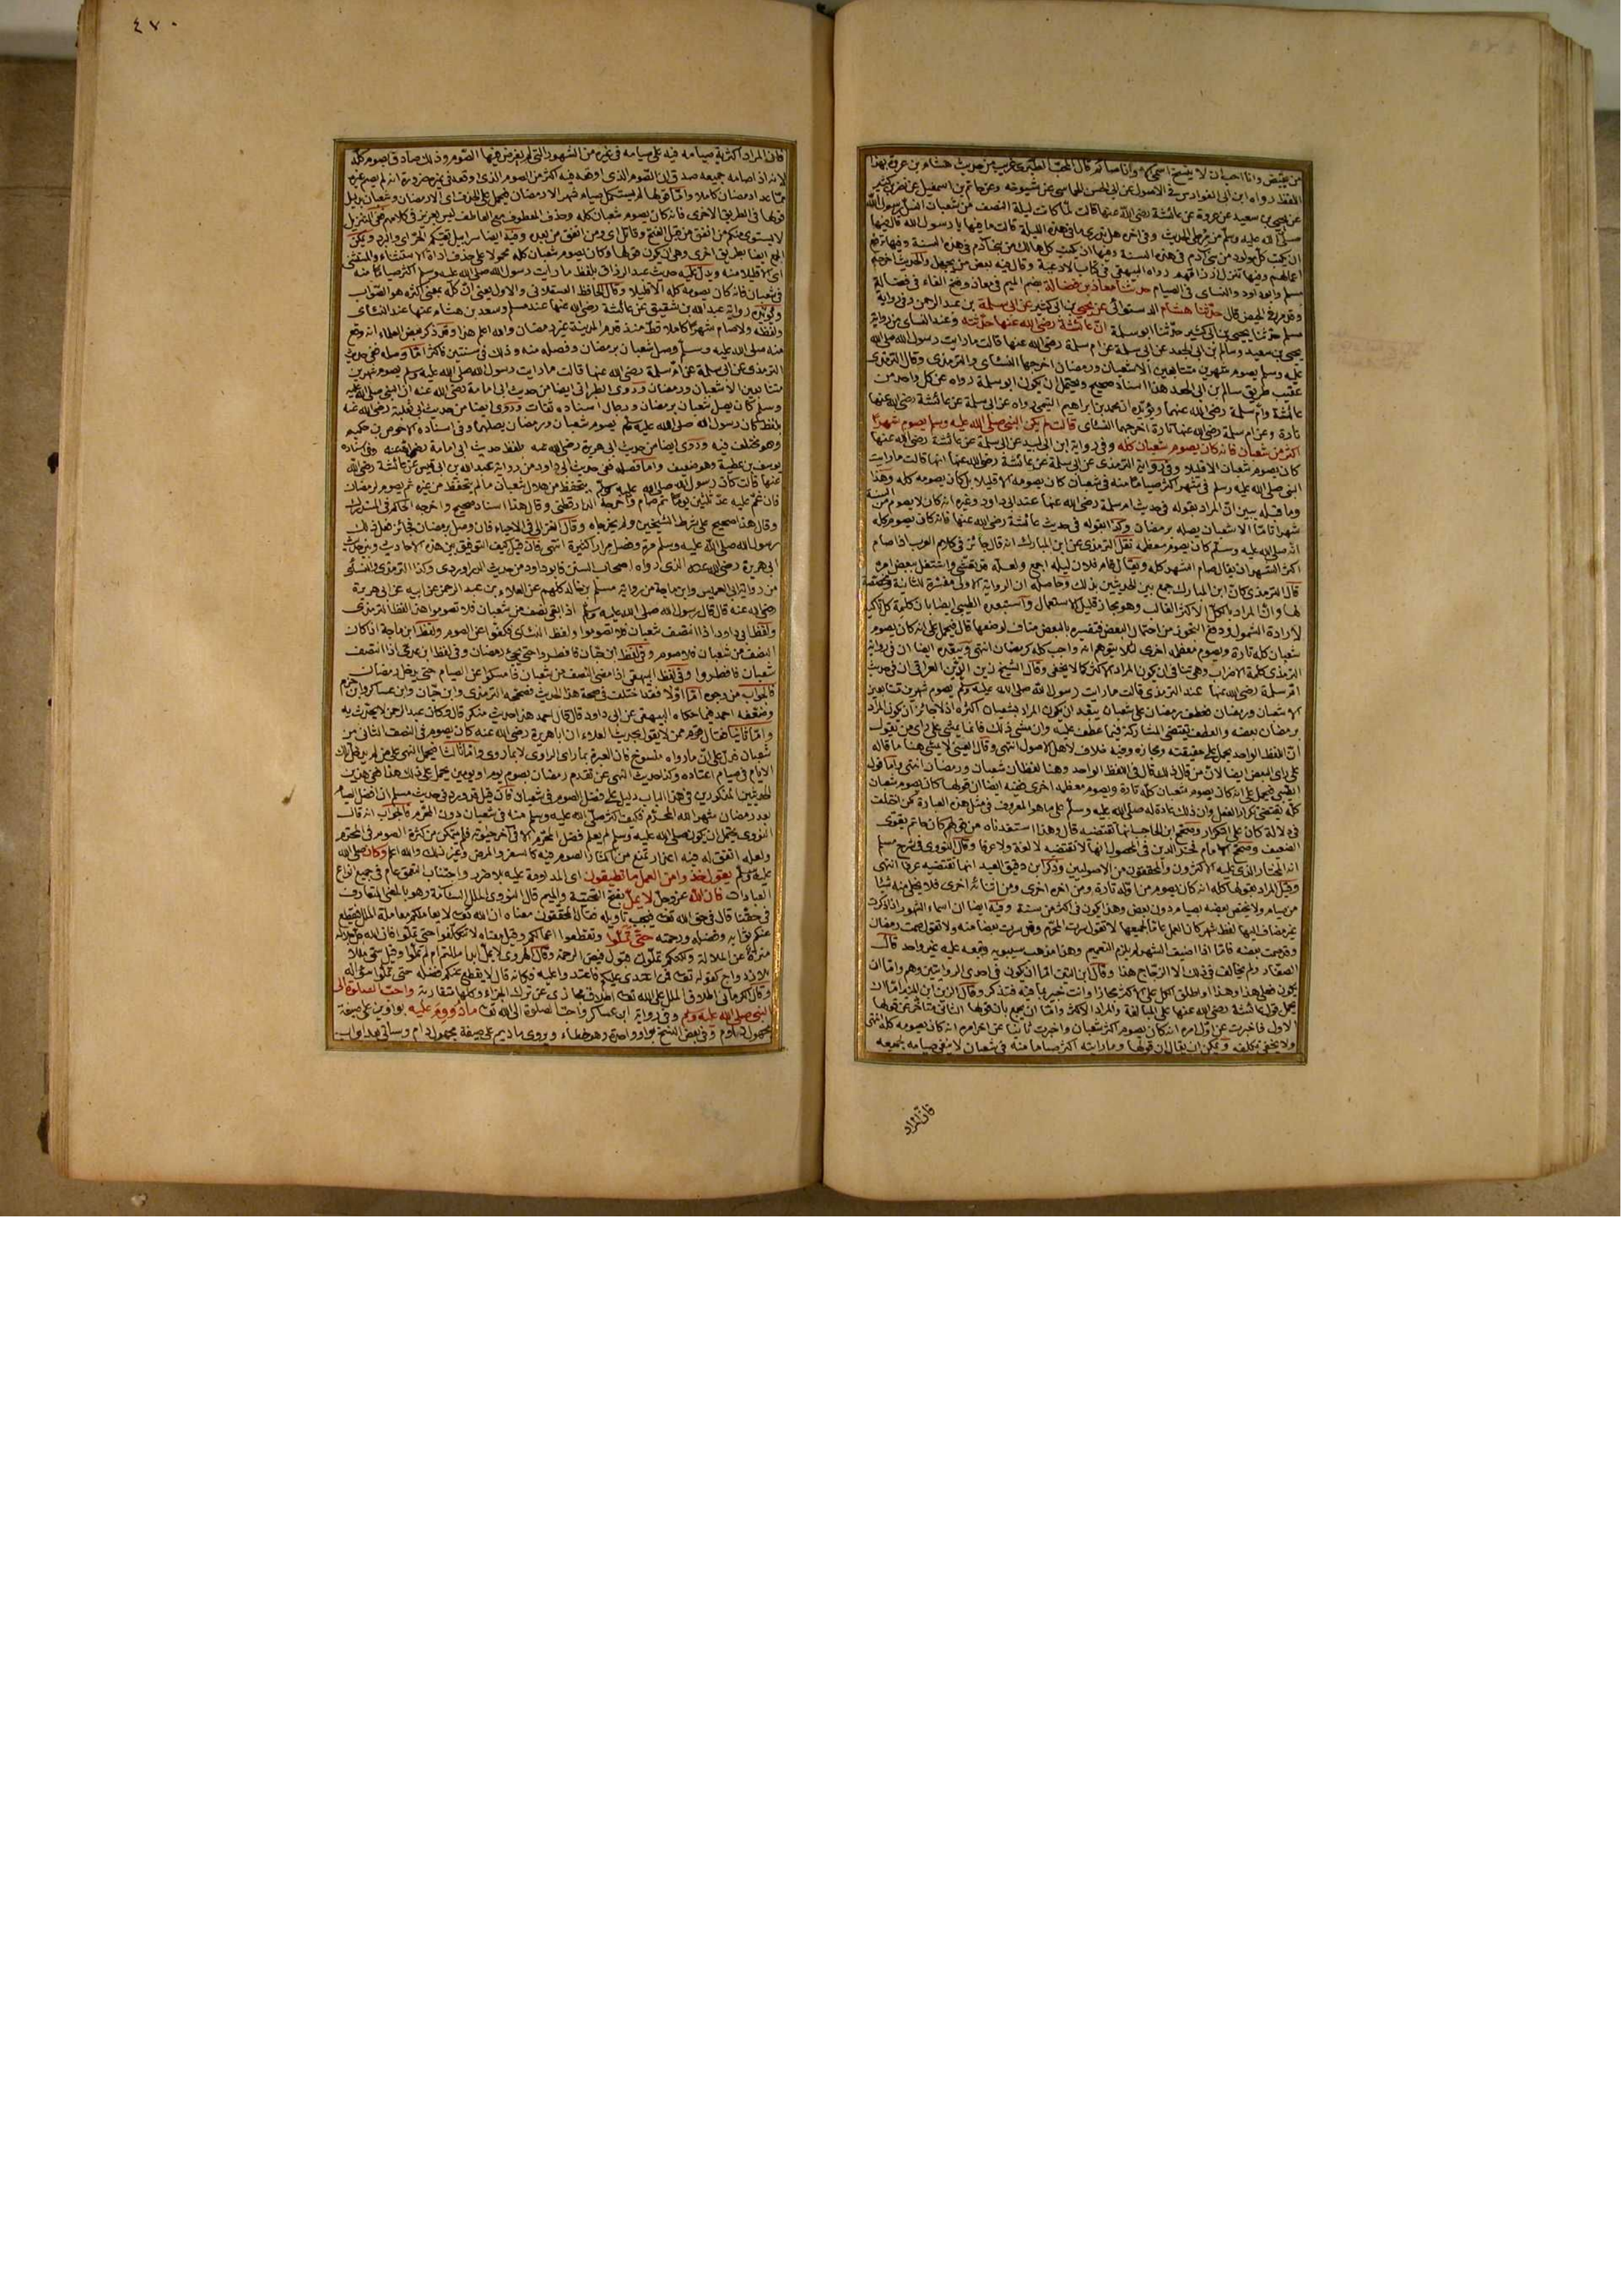 من يقبض وانا احب ان لا ينسخ اسمي الا وانا صائم قال المحب الطبري غريب من حديث هشام بن عروة بهذا
اللفظ رواه ابن ابى الفوارس فى الاصول عن ابى الحسن الحمامى عن شيوخه وعن حاتم بن اسمعيل عن نضر بن كثير
عن يحيى بن سعيد عن عروة عن عائشة رضى الله عنها قالت لما كانت ليلة النصف من شعبان انسل رسول الله
صلى الله عليه وسلم من مرطى الحديث وفى اخره هل تدرى ما فى هذه الليلة قالت ما فيها يا رسول الله قال فيها
ان يكتب كل مولود من بنى آدم فى هذه السنة وفيها ان يكتب كل هالك من بنى آدم فى هذه السنة وفيها ترفع
اعمالهم وفيها تنزل ارزاقهم رواه البيهقى فى كتاب الادعية وقال فيه بعض من يجهل والحديث اخرجه
مسلم وابو داود والنساى فى الصيام حدثنا معاذ بن فضالة بضم الميم فى معاذ وفتح الفاء فى فضالة
وقد مر فى الحيض قال حدثنا هشام الدستوائى عن يحيى بن ابى كثير عن ابى سلمة بن عبد الرحمن وفى رواية
مسلم حدثنا يحيى بن ابى كثير حدثنا ابو سلمة ان عائشة رضى الله عنها حدثته وعند النساى من رواية
يحيى بن سعيد وسالم بن ابى الجعد عن ابى سلمة عن ام سلمة رضى الله عنها قالت ما رايت رسول الله صلى الله
عليه وسلم يصوم شهرين متتابعين الا شعبان ورمضان اخرجها النسائى والترمذى وقال الترمذى
عقيب طريق سالم بن ابى الجعد هذا اسناد صحيح ويحتمل ان يكون ابو سلمة رواه عن كل واحد من
عائشة وام سلمة رضى الله عنهما ويؤيده ان محمد بن ابراهيم التيمى رواه عن ابى سلمة عن عائشة رضى الله عنها
تارة وعن ام سلمة رضى الله عنها تارة اخرجهما النسائى قالت لم يكن النبى صلى الله عليه وسلم يصوم شهرا
اكثر من شعبان فانه كان يصوم شعبان كله وفى رواية ابن ابى لبيد عن ابى سلمة عن عائشة رضى الله عنها
كان يصوم شعبان الا قليلا وفى رواية الترمذى عن ابى سلمة عن عائشة رضى الله عنها انها قالت ما رايت
النبى صلى الله عليه وسلم فى شهر اكثر صياما منه فى شعبان كان يصومه الا قليلا بل كان يصومه كله وهذا
وما قبله يبين ان المراد بقوله فى حديث ام سلمة رضى الله عنها عند ابى داود وغيره انه كان لا يصوم من السنة
شهرا تاما الا شعبان يصله برمضان وكذا بقوله فى حديث عائشة رضى الله عنها فانه كان يصوم كله
انه صلى الله عليه وسلم كان يصوم معظمه نقل الترمذى عن ابن المبارك انه قال جائز فى كلام العرب اذا صام
اكثر الشهر ان يقال صام الشهر كله ويقال قام فلان ليله اجمع ولعله قد تعشى واشتغل ببعض امره
قال الترمذى كان ابن المبارك جمع بين الحديثين بذلك وحاصله ان الرواية الاولى مفسرة للثانية ومخصصة
لها وان المراد بالكل الاكثر الغالب وهو مجاز قليل الاستعمال واستبعده الطيبى ايضا بان كلمة كل تاكيد
لارادة الشمول ودفع التجوز من احتمال البعض فتفسيره بالبعض مناف لوضعها قال فيحمل على انه كان يصوم
شعبان كله تارة ويصوم معظمه اخرى لئلا يتوهم انه واجب كله كرمضان انتهى ويبعده ايضا ان فى رواية
الترمذى كلمة الاضراب وهى تنافى ان يكون المراد الاكثر كما لا يخفى وقال الشيخ زين الدين العراقى ان فى حديث
ام سلمة رضى الله عنها عند الترمذى قالت ما رايت رسول الله صلى الله عليه وسلم يصوم شهرين متتابعين
الا شعبان ورمضان فعطف رمضان على شعبان يبعد ان يكون المراد بشعبان اكثره اذ لا جائز ان يكون المراد
برمضان بعضه والعطف يقتضى المشاركة فيما عطف عليه وان مشى ذلك فانما يمشى على راى من يقول
ان اللفظ الواحد يحمل على حقيقته ومجازه وفيه خلاف لاهل الاصول انتهى وقال العينى لا يمشى هنا ما قاله
على راى البعض ايضا لان من قال ذلك قال فى اللفظ الواحد وهنا لفظان شعبان ورمضان انتهى واما قول
الطيبى فيحمل على انه كان يصوم شعبان كله تارة ويصوم معظمه اخرى ففيه ايضا ان قولها كان يصوم شعبان
كله يقتضى تكرار الفعل وان ذلك عادة له صلى الله عليه وسلم على ما هو المعروف فى مثل هذه العبارة
فى دلالة كان على التكرار وصحح ابن الحاجب انها تقتضيه قال وهذا استفدناه من قولهم كان حاتم يقرى
الضيف وصحح الامام فخر الدين فى المحصول انها لا تقتضيه لا لغة ولا عرفا وقال النووى فى شرح مسلم
انه المختار الذى عليه الاكثرون والمحققون من الاصوليين وذكر ابن دقيق العيد انها تقتضيه عرفا انتهى
وقيل المراد بقولها كله انه كان يصوم من اوله تارة ومن اخره اخرى ومن اثنائه اخرى فلا يخلى منه شيئا
من صيام ولا يخص بعضه بصيام دون بعض وهذا يكون فى اكثر من سنة وفيه ايضا ان اسماء الشهور اذا ذكرت
غير مضاف اليها لفظ شهر كان العمل عاما لجميعها لا تقول سرت المحرم وقد سرت بعضا منه ولا تقول صمت رمضان
وقد صمت بعضه فاما اذا اضيف الشهر لم يلزم التعميم وهذا مذهب سيبويه وتبعه عليه غير واحد قال
الصفار ولم يخالف فى ذلك الا الزجاج هذا وقال ابن التين اما ان يكون فى احدى الروايتين وهم واما ان
يكون فعل هذا وهذا او اطلق الكل على الاكثر مجازا وانت خبير بما فيه فتذكر وقال الزين ابن المنير اما ان
يحمل قول عائشة رضى الله عنها على المبالغة والمراد الاكثر واما ان يجمع بان قولها الثانى متأخر عن قولها
الاول فاخبرت عن اول امره انه كان يصوم اكثر شعبان واخبرت ثانيا عن اخر امره انه كان يصومه كله انتهى
ولا يخفى تكلفه ويمكن ان يقال ان قولها وما رايته اكثر صياما منه فى شعبان لا ينفى صيامه بجميعه
فان المراد
٤٧٠
فان المراد اكثرية صيامه فيه على صيامه فى غيره من الشهور التى لم يفرض فيها الصوم وذلك صادق بصوم كله
لانه اذا صامه جميعه صدق ان الصوم الذى اوقعه فيه اكثر من الصوم الذى اوقعه فى غيره ضرورة انه لم يصم غيره
مما عدا رمضان كاملا واما قولها لم يستكمل صيام شهر الا رمضان فيحمل على الحذف اى الا رمضان وشعبان بدليل
قولها فى الطريق الاخرى فانه كان يصوم شعبان كله وحذف المعطوف مع العاطف ليس بعزيز فى كلامهم ففى التنزيل
لا يستوى منكم من انفق من قبل الفتح وقاتل اى ومن انفق من بعده وفيه ايضا سرابيل تقيكم الحر اى والبرد ويمكن
الجمع ايضا بطريق اخرى وهى ان يكون قولها وكان يصوم شعبان كله محمولا على حذف اداة الاستثناء والمستثنى
اى الا قليلا منه ويدل عليه حديث عبد الرزاق بلفظ ما رايت رسول الله صلى الله عليه وسلم اكثر صياما منه
فى شعبان فانه كان يصومه كله الا قليلا وقال الحافظ العسقلانى والاول يعنى ان كله بمعنى اكثره هو الصواب
ويؤيده رواية عبد الله بن شقيق عن عائشة رضى الله عنها عند مسلم وسعد بن هشام عنها عند النسائى
ولفظه ولا صام شهرا كاملا قط منذ قدم المدينة غير رمضان والله اعلم هذا وقد ذكر بعض العلماء انه وقع
منه صلى الله عليه وسلم وصل شعبان برمضان وفصله منه وذلك فى سنتين فاكثر اما وصله ففى حديث
الترمذى عن ابى سلمة عن ام سلمة رضى الله عنها قالت ما رايت رسول الله صلى الله عليه وسلم يصوم شهرين
متتابعين الا شعبان ورمضان وروى الطبرانى ايضا من حديث ابى امامة رضى الله عنه ان النبى صلى الله عليه
وسلم كان يصل شعبان برمضان ورجال اسناده ثقات وروى ايضا من حديث ابى ثعلبة رضى الله عنه
بلفظ كان رسول الله صلى الله عليه وسلم يصوم شعبان ورمضان يصلهما وفى اسناده الاحوص بن حكيم
وهو مختلف فيه وروى ايضا من حديث ابى هريرة رضى الله عنه بلفظ حديث ابى امامة رضى الله عنه وفى اسناده
يوسف بن عطية وهو ضعيف واما فصله ففى حديث ابى داود من رواية عبد الله بن ابى قيس عن عائشة رضى الله
عنها قالت كان رسول الله صلى الله عليه وسلم يتحفظ من هلال شعبان ما لم يتحفظ من غيره ثم يصوم لرمضان
فان غم عليه عد ثلثين يوما ثم صام واخرجه الدارقطنى وقال هذا اسناد صحيح واخرجه الحاكم فى المستدرك
وقال هذا صحيح على شرط الشيخين ولم يخرجاه وقال الغزالى فى الاحياء فان وصل برمضان فجائز فعل ذلك
رسول الله صلى الله عليه وسلم مرة وفصل مرارا كثيرة انتهى فان قيل كيف التوفيق بين هذه الاحاديث وبين حديث
ابى هريرة رضى الله عنه الذى رواه اصحاب السنن فابو داود من حديث الدراوردى وكذا الترمذى والنسائى
من رواية ابى العميس وابن ماجة من رواية مسلم بن خالد كلهم عن العلاء بن عبد الرحمن عن ابيه عن ابى هريرة
رضى الله عنه قال قال رسول الله صلى الله عليه وسلم اذا بقى نصف من شعبان فلا تصوموا هذا لفظ الترمذى
ولفظ ابى داود اذا انتصف شعبان فلا تصوموا ولفظ النسائى فكفوا عن الصوم ولفظ ابن ماجة اذا كان
النصف من شعبان فلا صوم وفى لفظ ابن حبان فافطروا حتى يجئ رمضان وفى لفظ ابن عدى اذا انتصف
شعبان فافطروا وفى لفظ البيهقى اذا مضى النصف من شعبان فامسكوا عن الصيام حتى يدخل رمضان
فالجواب من وجوه اما اولا فقد اختلف فى صحة هذا الحديث فصححه الترمذى وابن حبان وابن عساكر وابن حزم
وضعفه احمد فيما حكاه البيهقى عن ابى داود قال قال احمد هذا حديث منكر قال وكان عبد الرحمن لا يحدث به
شعبان فدل على ان ما رواه منسوخ فان العبرة بما راى الراوى لا بما روى واما ثالثا فيحمل النهى على من لم يدخل تلك
الايام فى صيام اعتاده وكذا حديث النهى عن تقدم رمضان بصوم يوم او يومين يحمل على ذلك هذا ففى هذين
الحديثين المذكورين فى هذا الباب دليل على فضل الصوم فى شعبان فان قيل قد ورد فى حديث مسلم ان افضل الصيام
بعد رمضان شهر الله المحرم فكيف اكثر صلى الله عليه وسلم منه فى شعبان دون المحرم فالجواب انه قال
النووى يحتمل ان يكون صلى الله عليه وسلم لم يعلم فضل المحرم الا فى آخر حيوته فلم يتمكن من كثرة الصوم فى المحرم
ولعله اتفق له فيه اعذار تمنع من اكثار الصوم فيه كالسفر والمرض وغير ذلك والله اعلم وكان صلى الله
عليه وسلم يقول خذوا من العمل ما تطيقون اى المداومة عليه بلا ضرر واجتناب التعمق عام فى جميع انواع
العبادات فان الله عز وجل لا يمل بفتح التحتية والميم قال النووى الملل السآمة وهو بالمعنى المتعارف
فى حقنا محال فى حق الله تعالى فيجب تأويله فقال المحققون معناه ان الله تعالى لا يعاملكم معاملة الملل فيقطع
عنكم ثوابه وفضله ورحمته حتى تملوا وتقطعوا اعمالكم وقيل معناه لا تتكلفوا حتى تملوا فان الله جل جلاله
منزه عن الملالة ولكنكم تملون قبول فيض الرحمة وقال الهروى لا يمل ابدا مللتم ام لم تملوا وقيل سمى مللا
بالازدواج كقوله تعالى فمن اعتدى عليكم فاعتدوا عليه فكانه قال لا يقطع عنكم فضله حتى تملوا سؤاله
وقال الكرمانى اطلاق الملل على الله تعالى اطلاق مجازى عن ترك الجزاء وكلها متقاربة واحب الصلوة الى
النبى صلى الله عليه وسلم وفى رواية ابن عساكر واحب الصلوة الى الله تعالى ما دووم عليه بواوين على صيغة
مجهول داوم وفى بعض النسخ بواو واحدة وهو خطأ وروى ما ديم على صيغة مجهول دام وسياتى بعد ابواب